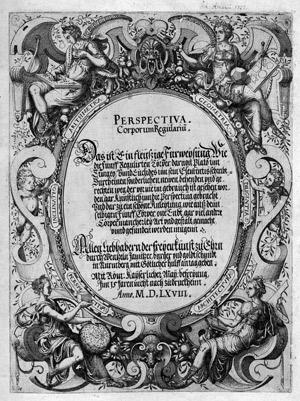 PERSPECTIVA
Corporum Regularium.
Das ist / Ein fleyssige Fürweysung / Wie
die Fünff Regulirten Cörper / darvon Plato inn
Timæo / Unnd Euclides inn sein Elementis schreibt /
Durch einen sonderlichen / newen / behenden und ge-
rechten weg / der vor nie in gebrauch ist gesehen wor-
den / gar künstlich inn die Perspectiva gebracht /
Und darzu ein schöne Anleytung / wie auß den-
selbigen Fünff Cörpern one Endt gar viel andere
Cörper / mancherley Art und gestalt / gemacht /
unnd gefunden werden mügen.
Allen Liebhabern der freyen Kunst zu Ehrn /
durch Wentzeln Jamitzer / burger und goldtschmid
in Nürmberg / mit Götlicher hülff an tag geben
Mit Röm: Kayserlicher May: befreyung /
Inn 15 jaren nicht nach zudrucken.
Anno. M.D.LXVIII.
ARITHMETICA
GEOMETRIA